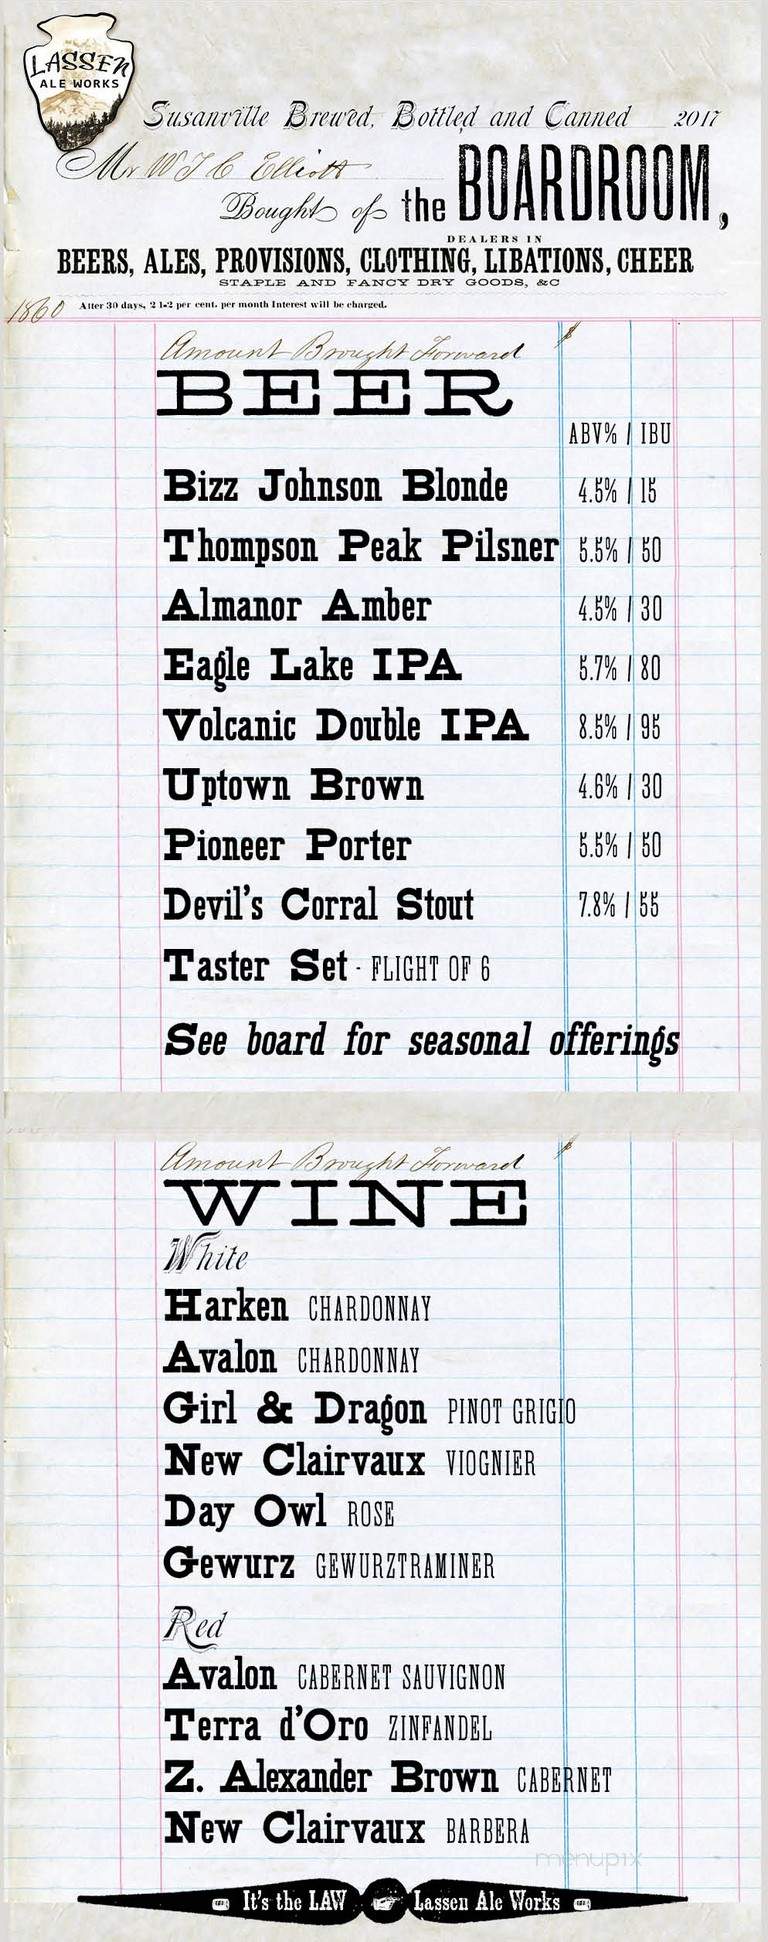 LASSEN
ALE WORKS
Susanville Brewed, Bottled and Canned 2017
Mr W T C Elliott
Bought of the BOARDROOM,
DEALERS IN
BEERS, ALES, PROVISIONS, CLOTHING, LIBATIONS, CHEER
STAPLE AND FANCY DRY GOODS, &C
1860 After 30 days, 2 1-2 per cent. per month Interest will be charged.
Amount Brought Forward $
BEER
ABV% / IBU
Bizz Johnson Blonde 4.5% / 15
Thompson Peak Pilsner 5.5% / 50
Almanor Amber 4.5% / 30
Eagle Lake IPA 5.7% / 80
Volcanic Double IPA 8.5% / 95
Uptown Brown 4.6% / 30
Pioneer Porter 5.5% / 50
Devil's Corral Stout 7.8% / 55
Taster Set - FLIGHT OF 6
See board for seasonal offerings
Amount Brought Forward $
WINE
White
Harken CHARDONNAY
Avalon CHARDONNAY
Girl & Dragon PINOT GRIGIO
New Clairvaux VIOGNIER
Day Owl ROSE
Gewurz GEWURZTRAMINER
Red
Avalon CABERNET SAUVIGNON
Terra d'Oro ZINFANDEL
Z. Alexander Brown CABERNET
New Clairvaux BARBERA
menupix
It's the LAW Lassen Ale Works